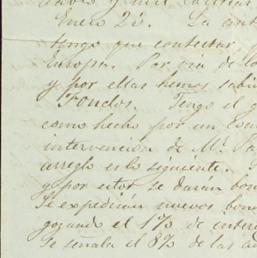 Enero 23. La
tengo que contestar,
Europa. Por via de
y por ellas hemos sabi
Fondos. Tengo el
como hecho por un Com
intervencion de Mr.
arreglo es lo siguiente.
y por estos se daran bon
Se expediran nuevos bon
gozando el 1% de interes
Se señala el 8% de las